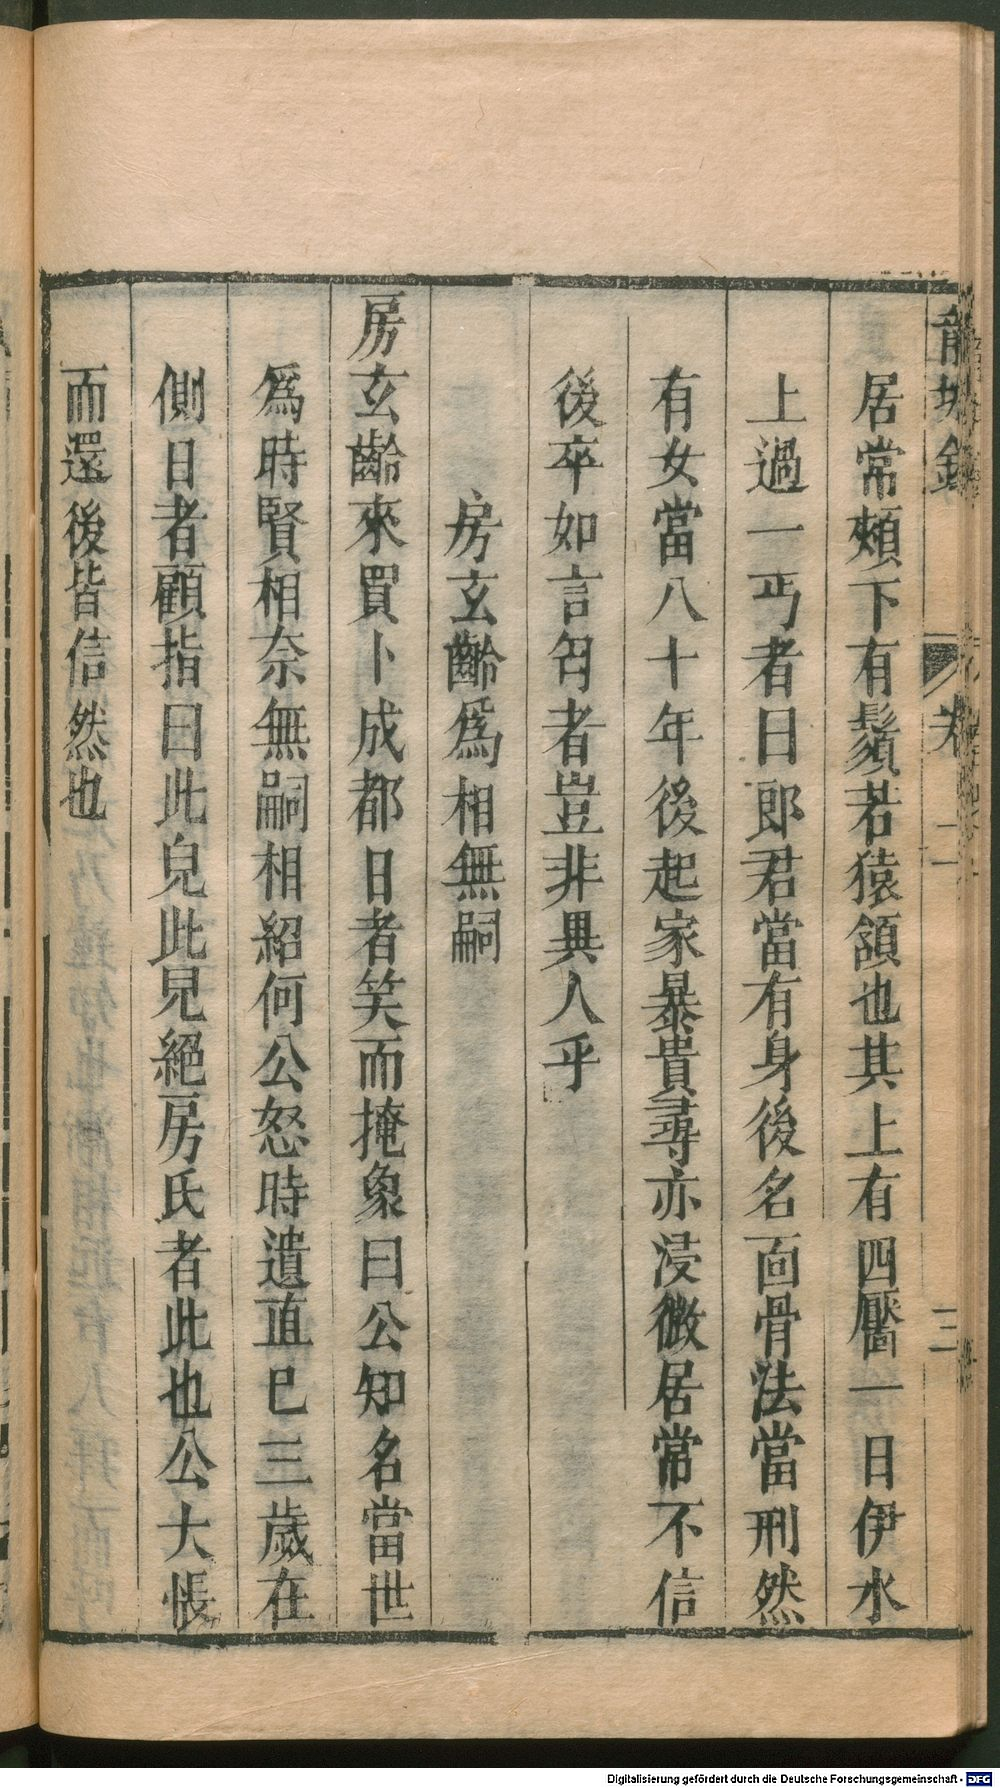 居常頰下有鬚若猿頷也其上有四黶一日伊水
上過一丐者曰郎君當有身後名面骨法當刑然
有女當八十年後起家暴貴尋亦浸微居常不信
後卒如言丐者豈非異人乎
房玄齡為相無嗣
房玄齡來買卜成都日者笑而掩象曰公知名當世
為時賢相奈無嗣相紹何公怒時遺直已三歲在
側日者顧指曰此兒此兒絕房氏者此也公大悵
而還後皆信然也
Digitalisierung gefördert durch die Deutsche Forschungsgemeinschaft - DFG